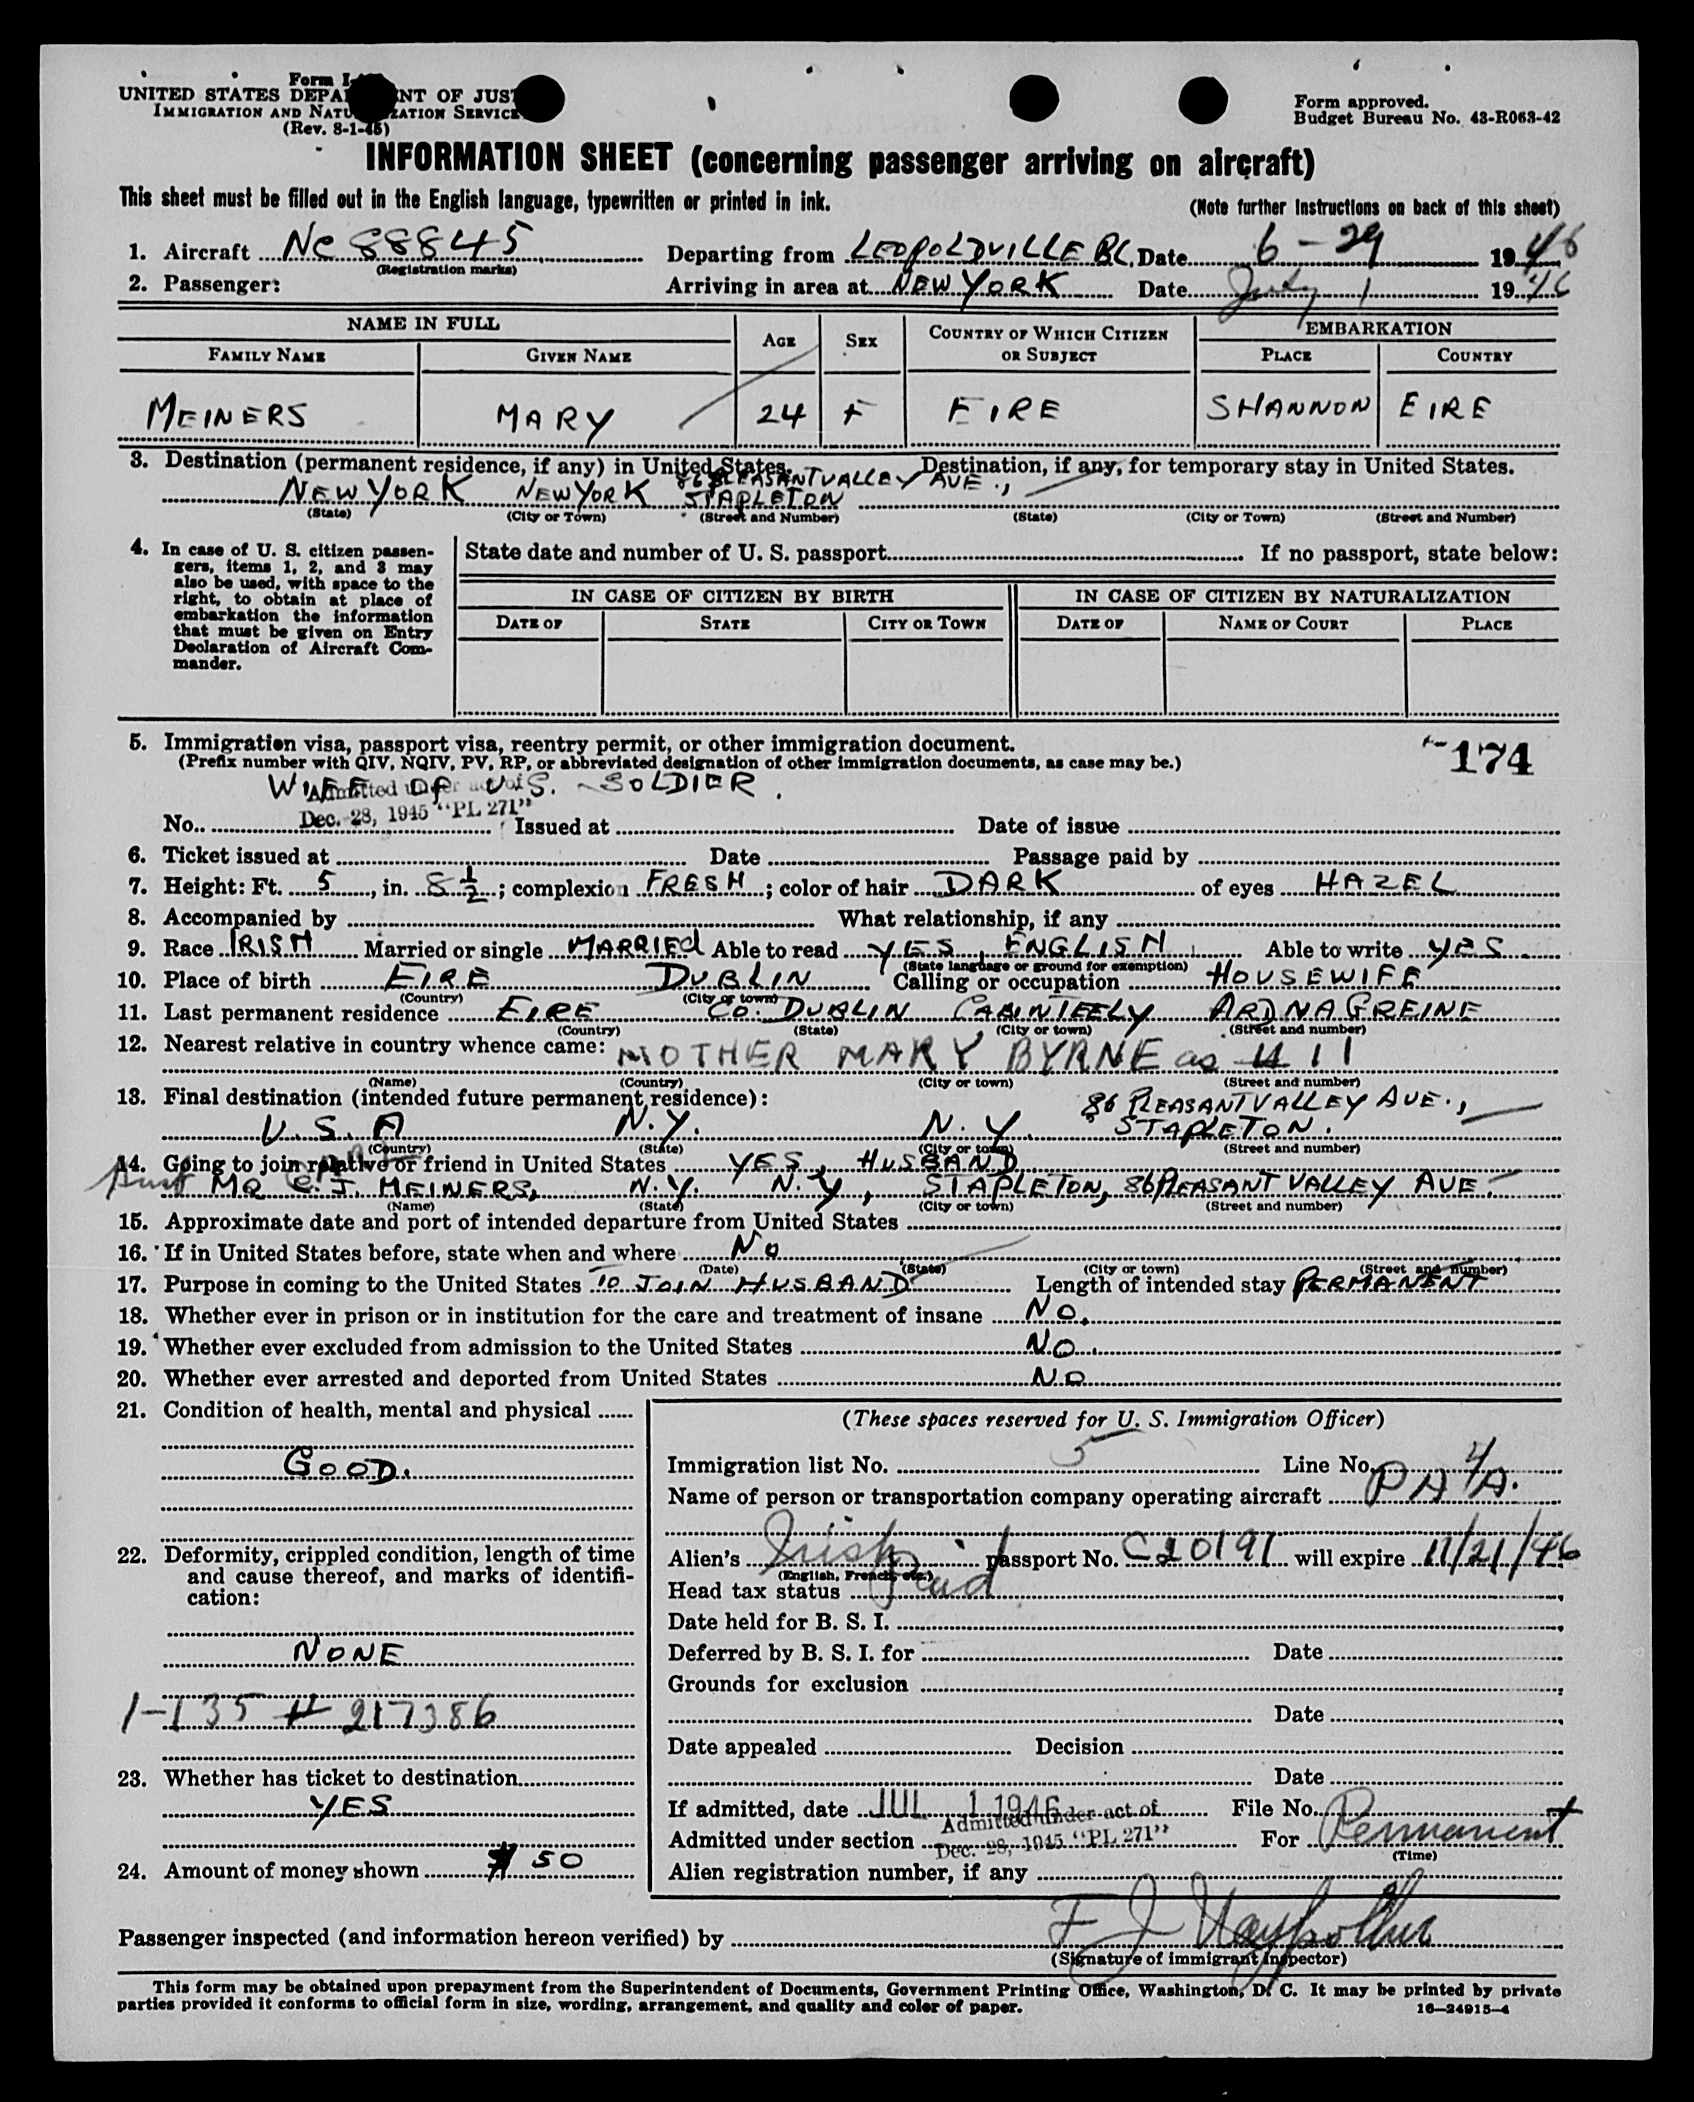 Form I-
UNITED STATES DEPA NT OF JUST
IMMIGRATION AND NATU ZATION SERVICE
(Rev. 8-1-45)
Form approved.
Budget Bureau No. 43-R063-42
INFORMATION SHEET (concerning passenger arriving on aircraft)
This sheet must be filled out in the English language, typewritten or printed in ink.
(Note further instructions on back of this sheet)
1. Aircraft NC 88845 Departing from LEOPOLDVILLE BC. Date 6-29 1946
(Registration marks)
2. Passenger: Arriving in area at NEW YORK Date July 1 1946
NAME IN FULL AGE SEX COUNTRY OF WHICH CITIZEN OR SUBJECT EMBARKATION
FAMILY NAME GIVEN NAME PLACE COUNTRY
MEINERS MARY 24 F EIRE SHANNON EIRE
3. Destination (permanent residence, if any) in United States. Destination, if any, for temporary stay in United States.
86 PLEASANTVALLEY AVE.,
NEW YORK NEW YORK STAPLETON
(State) (City or Town) (Street and Number) (State) (City or Town) (Street and Number)
4. In case of U. S. citizen passen-
gers, items 1, 2, and 3 may
also be used, with space to the
right, to obtain at place of
embarkation the information
that must be given on Entry
Declaration of Aircraft Com-
mander.
State date and number of U. S. passport If no passport, state below:
IN CASE OF CITIZEN BY BIRTH IN CASE OF CITIZEN BY NATURALIZATION
DATE OF STATE CITY OR TOWN DATE OF NAME OF COURT PLACE
5. Immigration visa, passport visa, reentry permit, or other immigration document.
(Prefix number with QIV, NQIV, PV, RP, or abbreviated designation of other immigration documents, as case may be.)
174
WIFE OF U.S. SOLDIER.
Admitted under act of
Dec. 28, 1945 "PL 271"
No. Issued at Date of issue
6. Ticket issued at Date Passage paid by
7. Height: Ft. 5, in. 8 1/2; complexion FRESH; color of hair DARK of eyes HAZEL
8. Accompanied by What relationship, if any
9. Race IRISH Married or single MARRIEd Able to read YES, ENGLISH Able to write YES
(State language or ground for exemption)
10. Place of birth EIRE DUBLIN Calling or occupation HOUSEWIFE
(Country) (City or town)
11. Last permanent residence EIRE CO. DUBLIN CABINTEELY ARDNAGREINE
(Country) (State) (City or town) (Street and number)
12. Nearest relative in country whence came: MOTHER MARY BYRNE as # 11
(Name) (Country) (City or town) (Street and number)
13. Final destination (intended future permanent residence): 86 PLEASANTVALLEY AVE.,
U.S.A N.Y. N.Y. STAPLETON.
(Country) (State) (City or town) (Street and number)
14. Going to join relative or friend in United States YES, HUSBAND
MR C.J. MEINERS, N.Y. N.Y, STAPLETON, 86 PLEASANT VALLEY AVE.
(Name) (State) (City or town) (Street and number)
15. Approximate date and port of intended departure from United States
16. If in United States before, state when and where NO
(Date) (State) (City or town) (Street and number)
17. Purpose in coming to the United States TO JOIN HUSBAND Length of intended stay PERMANENT
18. Whether ever in prison or in institution for the care and treatment of insane NO.
19. Whether ever excluded from admission to the United States NO.
20. Whether ever arrested and deported from United States NO
21. Condition of health, mental and physical
GOOD.
22. Deformity, crippled condition, length of time
and cause thereof, and marks of identifi-
cation:
NONE
1-135 # 217386
23. Whether has ticket to destination
YES
24. Amount of money shown $ 50
(These spaces reserved for U. S. Immigration Officer)
Immigration list No. 5 Line No. 4
Name of person or transportation company operating aircraft PAA.
Alien's Irish passport No. C20191 will expire 11/21/46
(English, French, etc.)
Head tax status paid
Date held for B. S. I.
Deferred by B. S. I. for Date
Grounds for exclusion
Date
Date appealed Decision
Date
If admitted, date JUL 1 1946 File No.
Admitted under section Admitted under act of Dec. 28, 1945 "PL 271" For Permanent
(Time)
Alien registration number, if any
Passenger inspected (and information hereon verified) by F J
(Signature of immigrant inspector)
This form may be obtained upon prepayment from the Superintendent of Documents, Government Printing Office, Washington, D. C. It may be printed by private
parties provided it conforms to official form in size, wording, arrangement, and quality and color of paper. 16—24915-4